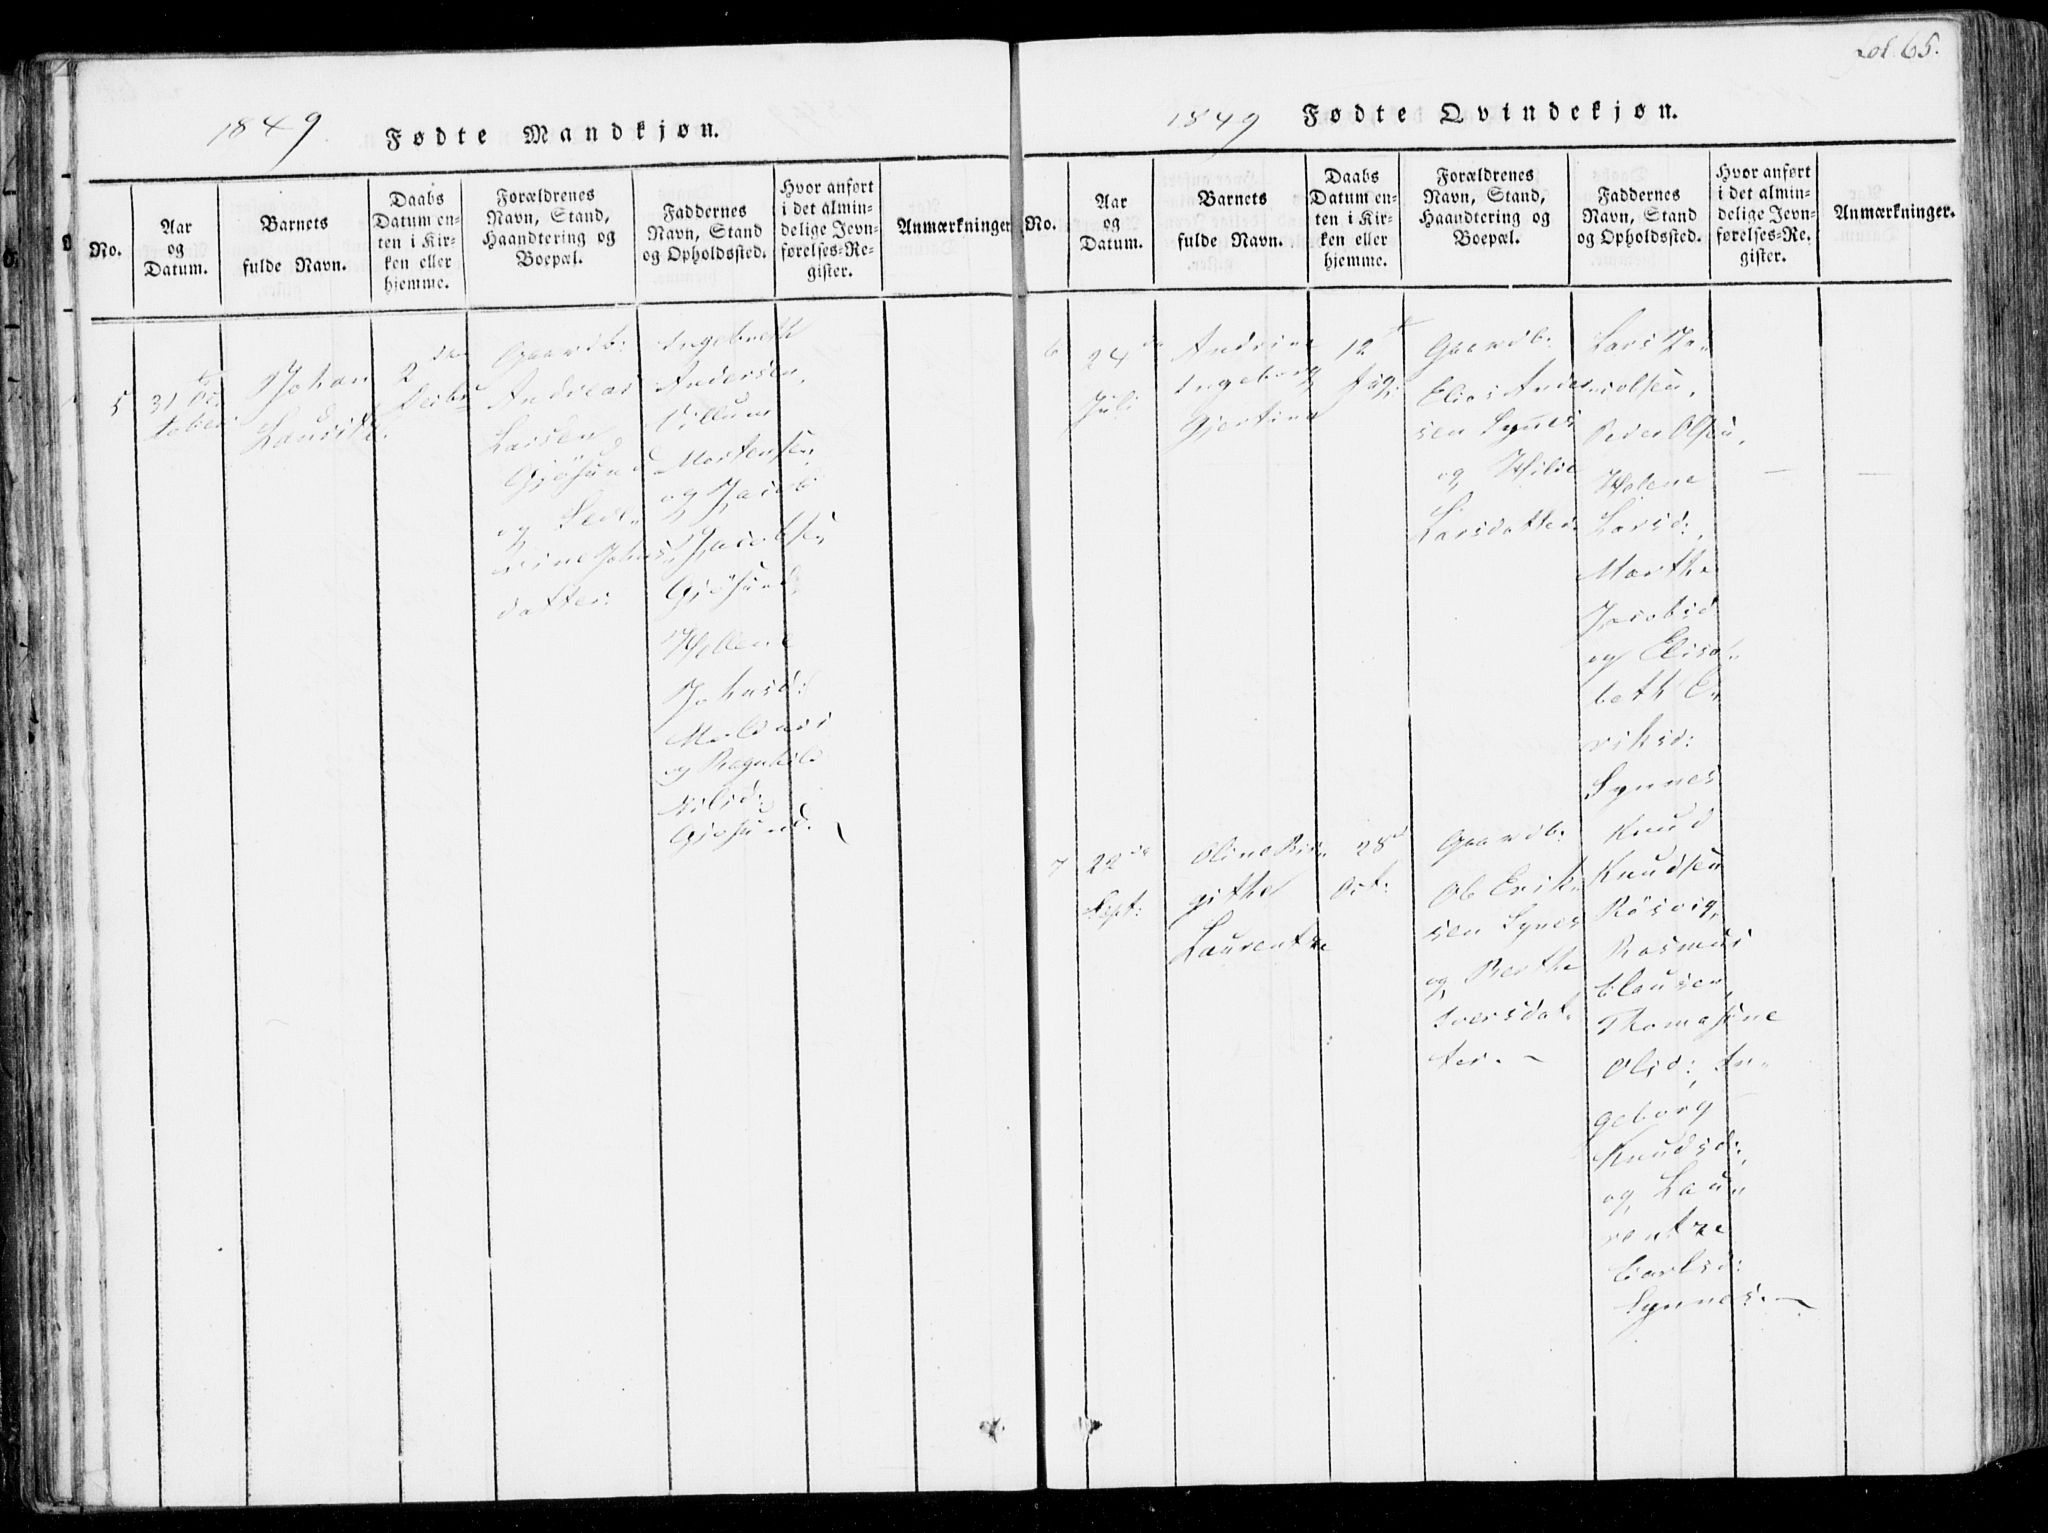 Fol. 65.
1849. Fødte Mandkjøn.
No.
Aar
og
Datum.
Barnets
fulde Navn.
Daabs
Datum en-
ten i Kir-
ken eller
hjemme.
Forældrenes
Navn, Stand,
Haandtering og
Boepæl.
Faddernes
Navn, Stand
og Opholdssted.
Hvor anført
i det almin-
delige Jevn-
førelses-Re-
gister.
Anmærkninger
5
31te Oc
tober
Johan
Laurits.
2den
Decbr
Gaardb:
Andreas
Larsen
Gjøsund
og Seve-
rine Johns
datter.
Ingebreth
Andersen,
Villum
Mortensen,
og Jacob
Jacobsen
Gjøsund,
Hellene
Johnsd:
og Ragnhild
Nilsd:
Gjøsund.
1849 Fødte Qvindekjøn.
No.
Aar
og
Datum.
Barnets
fulde Navn.
Daabs
Datum en-
ten i Kir-
ken eller
hjemme.
Forældrenes
Navn, Stand,
Haandtering og
Boepæl.
Faddernes
Navn, Stand
og Opholdssted.
Hvor anført
i det almin-
delige Jevn-
førelses-Re-
gister.
Anmærkninger.
6
24de
Juli
Andrine
Ingeborg
Gjertine
12te
Aug:
Gaardb.
Elias Ander
sen Synnes
og
Larsdatter
Lars
Peder Olsen,
Helene
Larsd:,
Marthe
Jacobsd
og Elisa-
beth E-
riksd:
Synnes
—
—
7
22de
Sept:
Oline Bir-
githe
Laurentze
28de
Oct:
Gaardb.
Ole Erik-
sen Synes
og Berthe
Iversdat-
ter. –
Knud
Knudsen
Røsvig,
Rasmus
Clausen,
Thomasine
Olsd:, In-
geborg
Knudsd:,
og Lau-
rentze
Carlsd:
Synnes. –